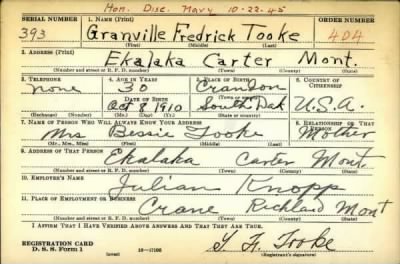 Hon. Disc. Navy 10-22-45
SERIAL NUMBER 1. NAME (Print) ORDER NUMBER
393 Granville Fredrick Tooke 404
(First) (Middle) (Last)
2. ADDRESS (Print)
Ekalaka Carter Mont.
(Number and street or R. F. D. number) (Town) (County) (State)
3. TELEPHONE 4. AGE IN YEARS 5. PLACE OF BIRTH 6. COUNTRY OF CITIZENSHIP
none 30 Crandon
DATE OF BIRTH (Town or county)
Oct 8 1910 South Dak U.S.A.
(Exchange) (Number) (Mo.) (Day) (Yr.) (State or country)
7. NAME OF PERSON WHO WILL ALWAYS KNOW YOUR ADDRESS 8. RELATIONSHIP OF THAT PERSON
Mrs Bessie Tooke Mother
(Mr., Mrs., Miss) (First) (Middle) (Last)
9. ADDRESS OF THAT PERSON
Ekalaka Carter Mont.
(Number and street or R. F. D. number) (Town) (County) (State)
10. EMPLOYER'S NAME
Julian Knopp
11. PLACE OF EMPLOYMENT OR BUSINESS
Crane Richland Mont
(Number and street or R. F. D. number) (Town) (County) (State)
I AFFIRM THAT I HAVE VERIFIED ABOVE ANSWERS AND THAT THEY ARE TRUE.
REGISTRATION CARD
D. S. S. Form 1 (over) 16-17105 Tooke
(Registrant's signature)